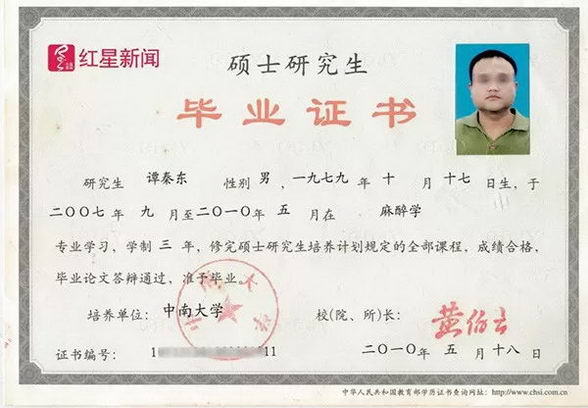 红星新闻
硕士研究生
毕业证书
研究生 谭秦东 性别 男，一九七九 年 十 月 十七 日生，于
二〇〇七年 九 月至二〇一〇年 五 月在 麻醉学
专业学习，学制 三 年，修完硕士研究生培养计划规定的全部课程，成绩合格，
毕业论文答辩通过，准予毕业。
培养单位：中南大学 校(院、所)长：黄伯云
证书编号：1 11 二〇一〇年 五 月 十八 日
中华人民共和国教育部学历证书查询网址：http://www.chsi.com.cn